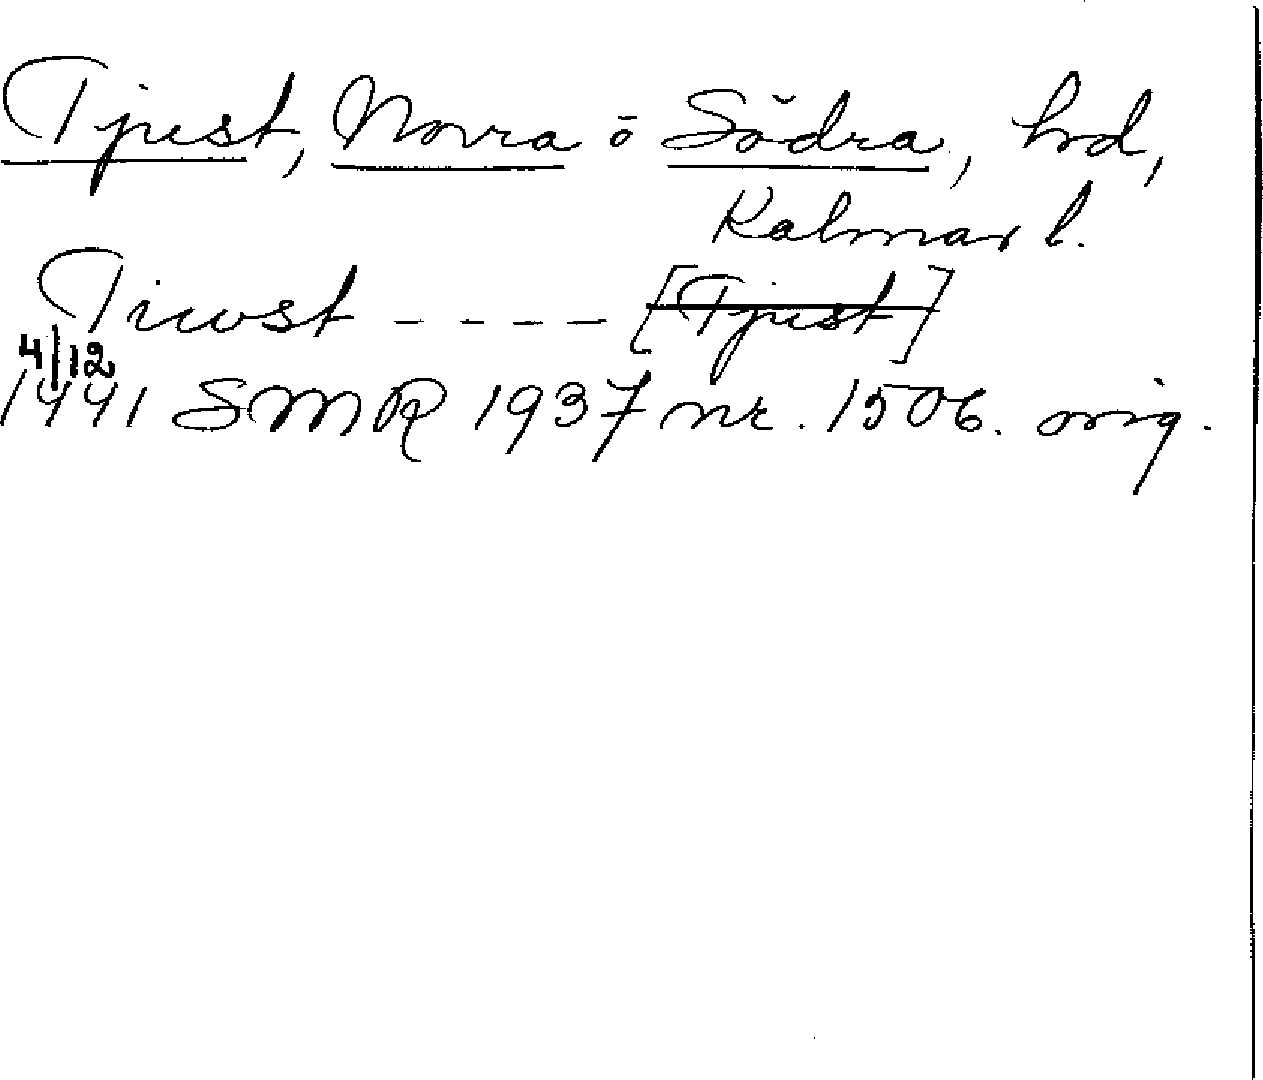 Tjust, Norra o Södra, hrd,
Kalmar l.
Tiwst - - - - - [Tjust]
4/12
1441 SMR 1937 nr. 1506. orig.